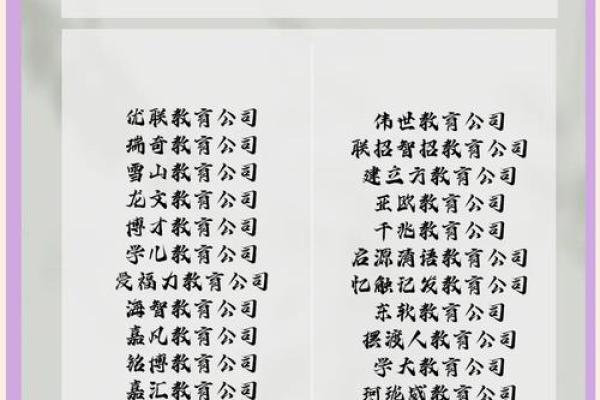 优联教育公司
瑞奇教育公司
雪山教育公司
龙文教育公司
博才教育公司
学儿教育公司
爱福力教育公司
海智教育公司
嘉凡教育公司
铭博教育公司
嘉汇教育公司
伟世教育公司
联招智招教育公司
建立方教育公司
亚欧教育公司
千兆教育公司
启源清语教育公司
忆触记发教育公司
东软教育公司
摆渡人教育公司
学大教育公司
珂珑威教育公司